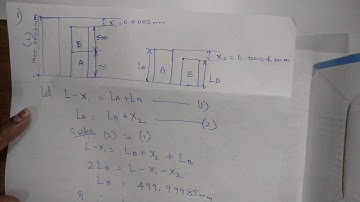 X₁=0.0002mm
500
(L)
B
A
X₂=0.0004mm
LA
A
B
LB
L-X₁ = LA+LB — (1)
LA = LB+X₂ — (2)
Subn (2) in (1)
L-X₁ = LB + X₂ + LB
2LB = L-X₁-X₂
LB = 499.99985mm